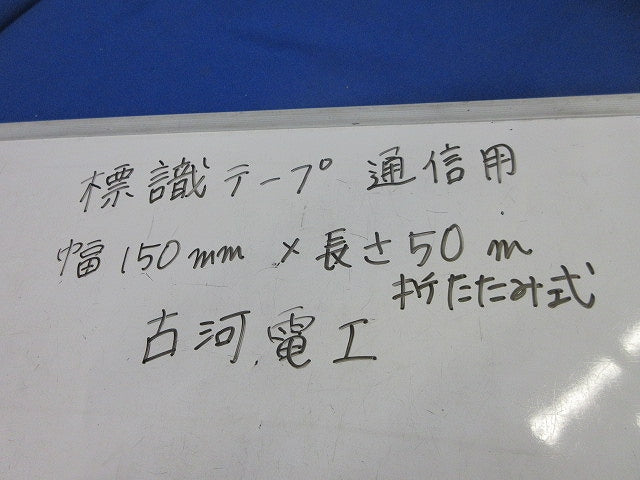 標識テープ 通信用
幅150mm×長さ50m
折たたみ式
古河電工